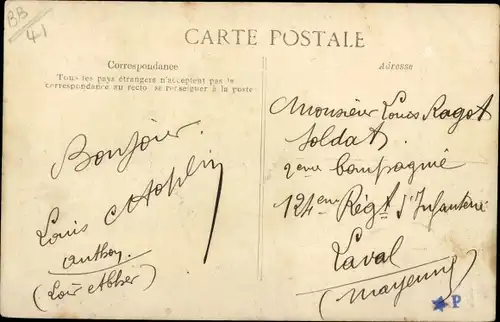 BB
41
CARTE POSTALE
Correspondance
Tous les pays étrangers n'acceptent pas la
correspondance au recto se renseigner à la poste
Adresse
Bonjour.
Louis
(Loir et Cher)
Monsieur Louis Ragot
Soldat
2eme Compagnie
124eme Régt d'Infanterie
Laval
(Mayenne)
P